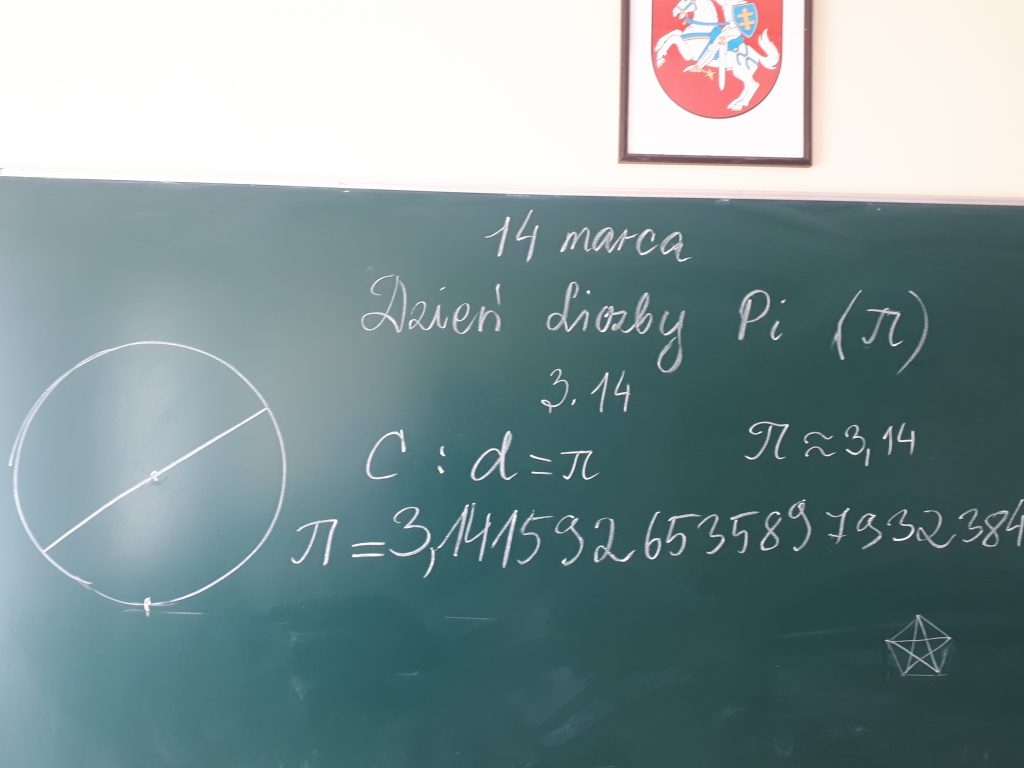 14 marca
Dzień Liczby Pi (π)
3.14
C : d = π
π ≈ 3,14
π = 3,1415926535897932384